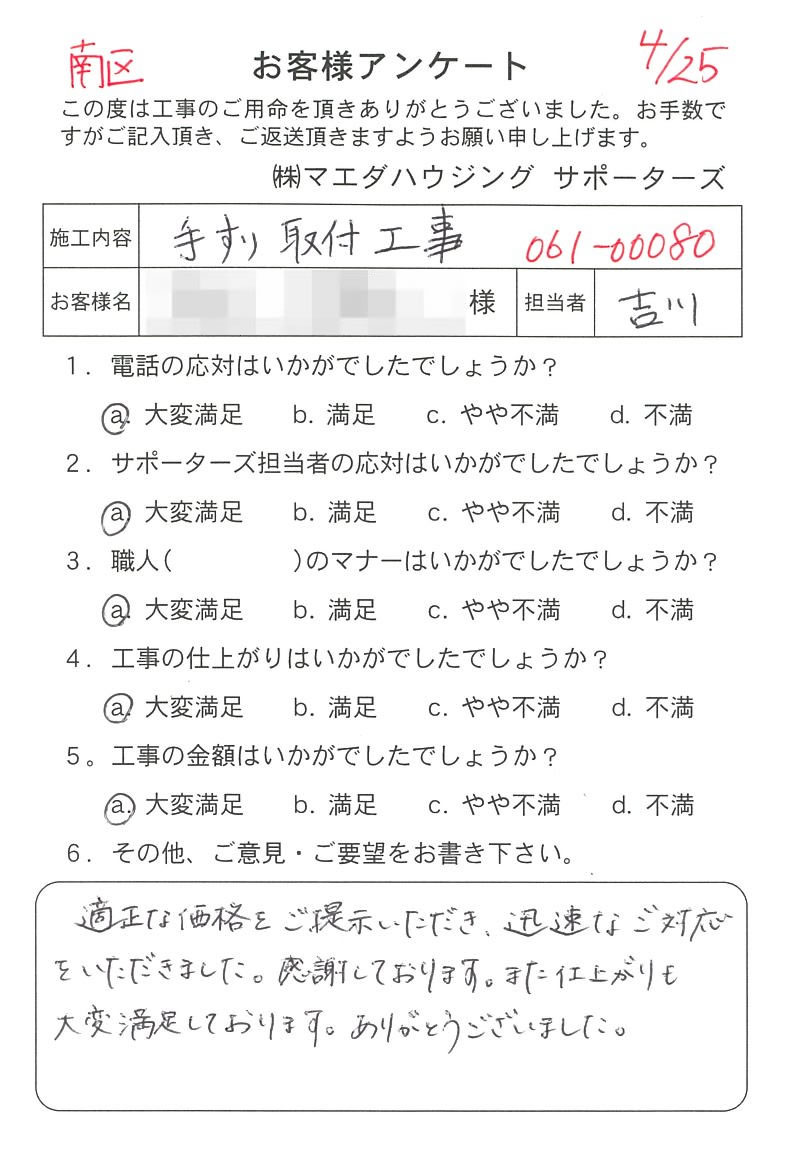 南区 お客様アンケート 4/25
この度は工事のご用命を頂きありがとうございました。お手数で
すがご記入頂き、ご返送頂きますようお願い申し上げます。
㈱マエダハウジング サポーターズ
施工内容 手すり取付工事 061-00080
お客様名 様 担当者 吉川
1. 電話の応対はいかがでしたでしょうか？
a. 大変満足 b. 満足 c. やや不満 d. 不満
2. サポーターズ担当者の応対はいかがでしたでしょうか？
a. 大変満足 b. 満足 c. やや不満 d. 不満
3. 職人( )のマナーはいかがでしたでしょうか？
a. 大変満足 b. 満足 c. やや不満 d. 不満
4. 工事の仕上がりはいかがでしたでしょうか？
a. 大変満足 b. 満足 c. やや不満 d. 不満
5。工事の金額はいかがでしたでしょうか？
a. 大変満足 b. 満足 c. やや不満 d. 不満
6. その他、ご意見・ご要望をお書き下さい。
適正な価格をご提示いただき、迅速なご対応
をいただきました。感謝しております。また仕上がりも
大変満足しております。ありがとうございました。